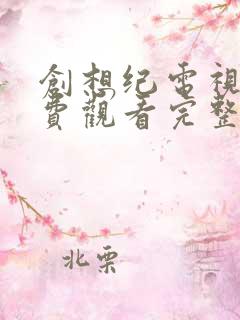 創想纪電視
費觀看完整
北栗